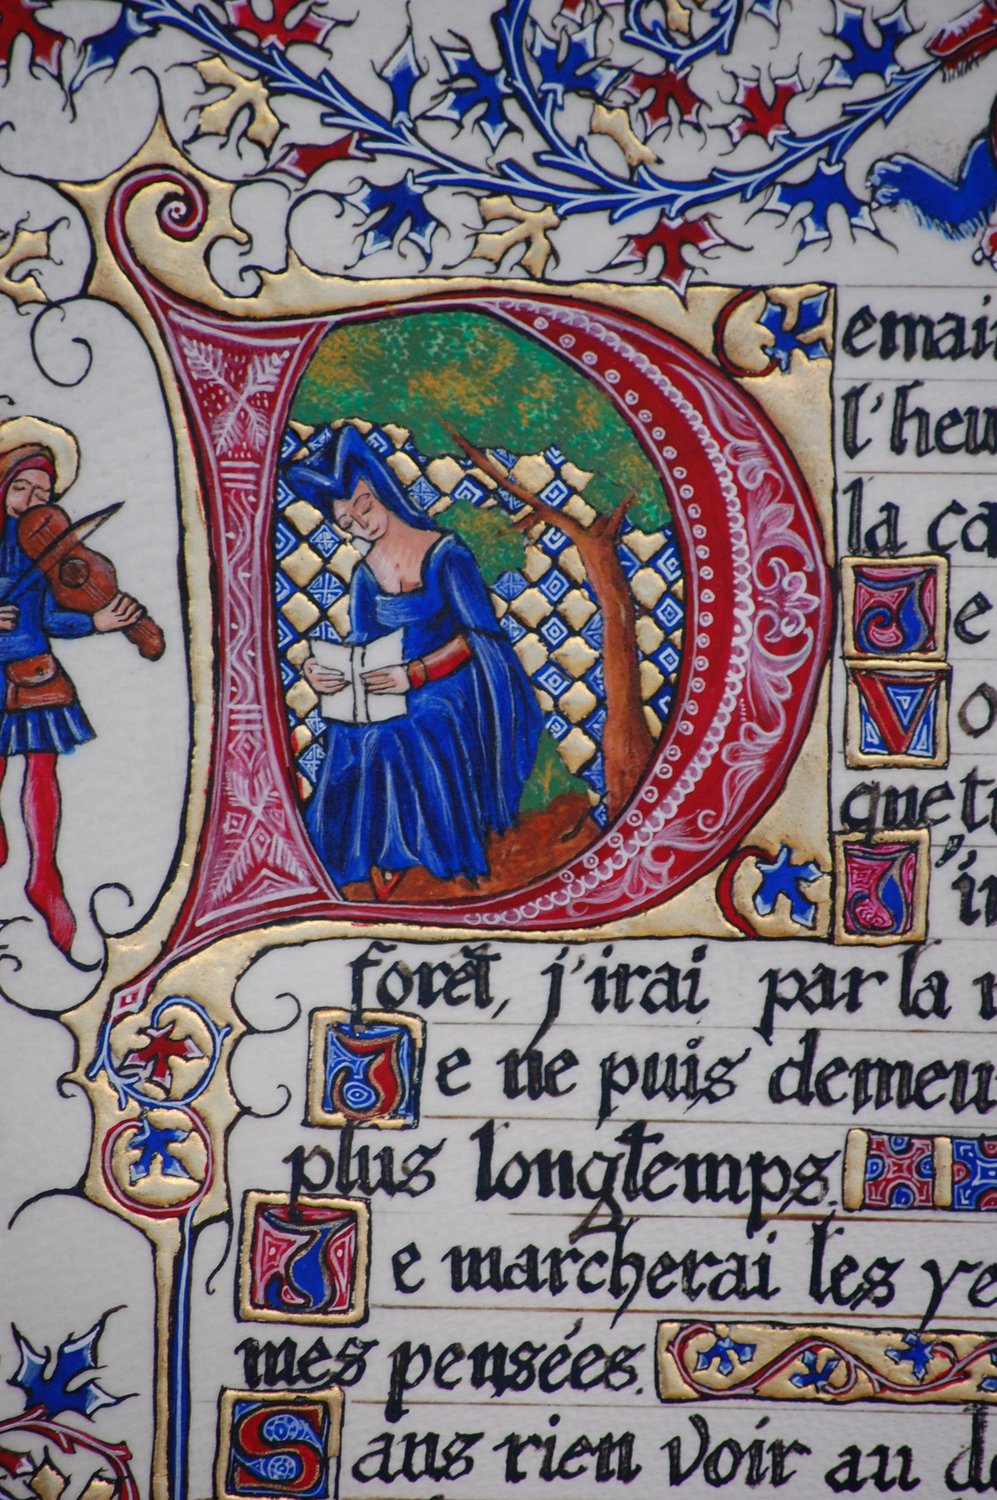 Demain
l'heu
la ca
Je
Vo
que t
J'i
forêt, j'irai par la
Je ne puis demeu
plus longtemps.
Je marcherai les ye
mes pensées.
Sans rien voir au de